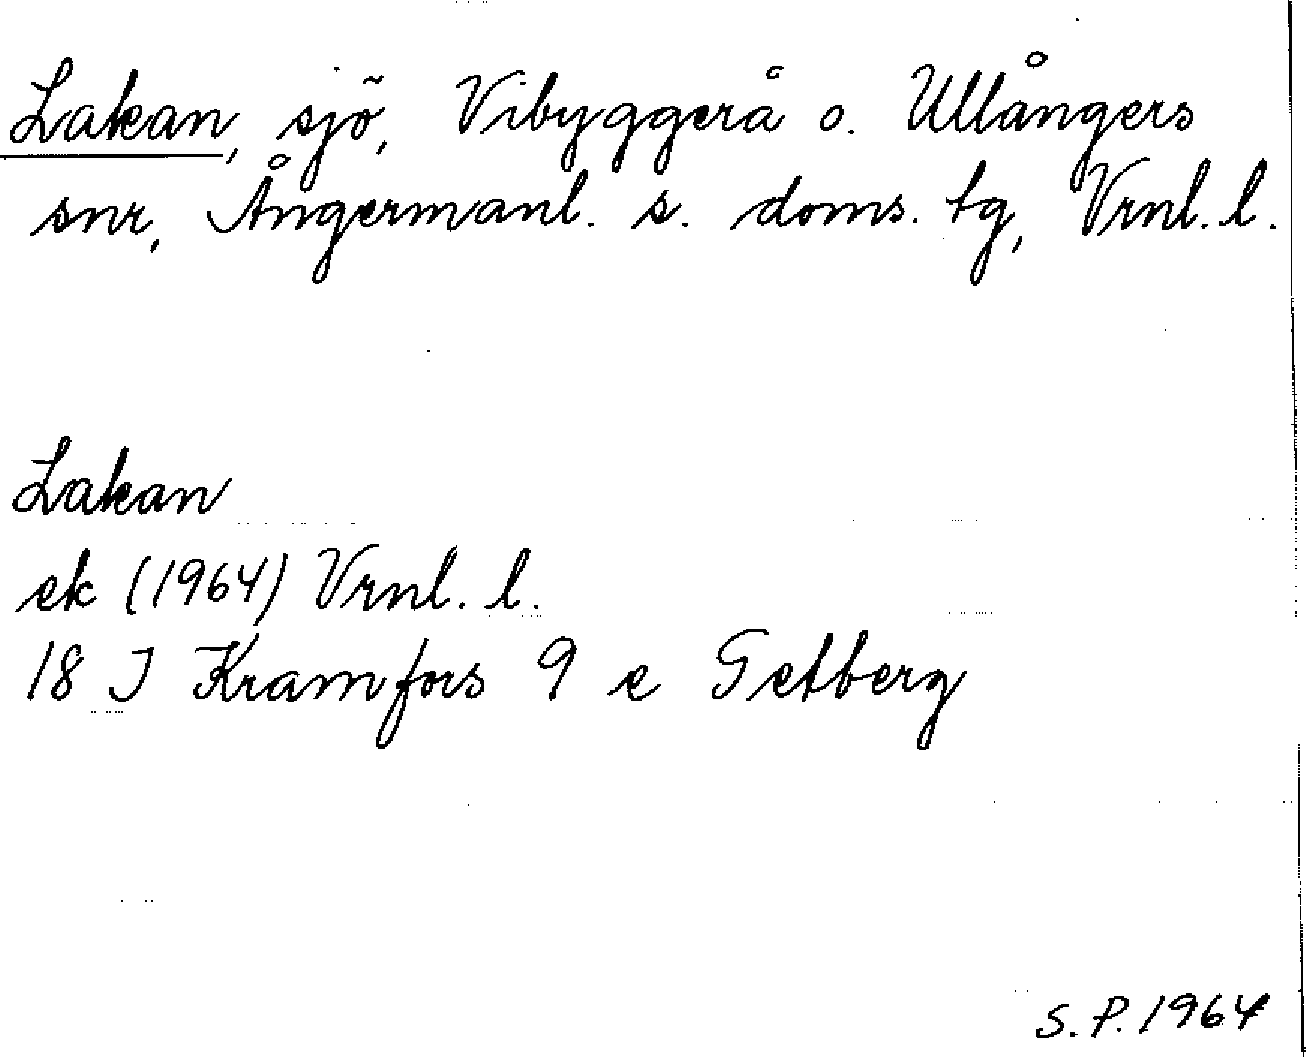 Lakan, sjö, Vibyggerå o. Ullångers
snr, Ångermanl. s. doms. tg, Vrnl. l.
Lakan
ek (1964) Vrnl. l.
18 J Kramfors 9 e Getberg
S.P. 1964